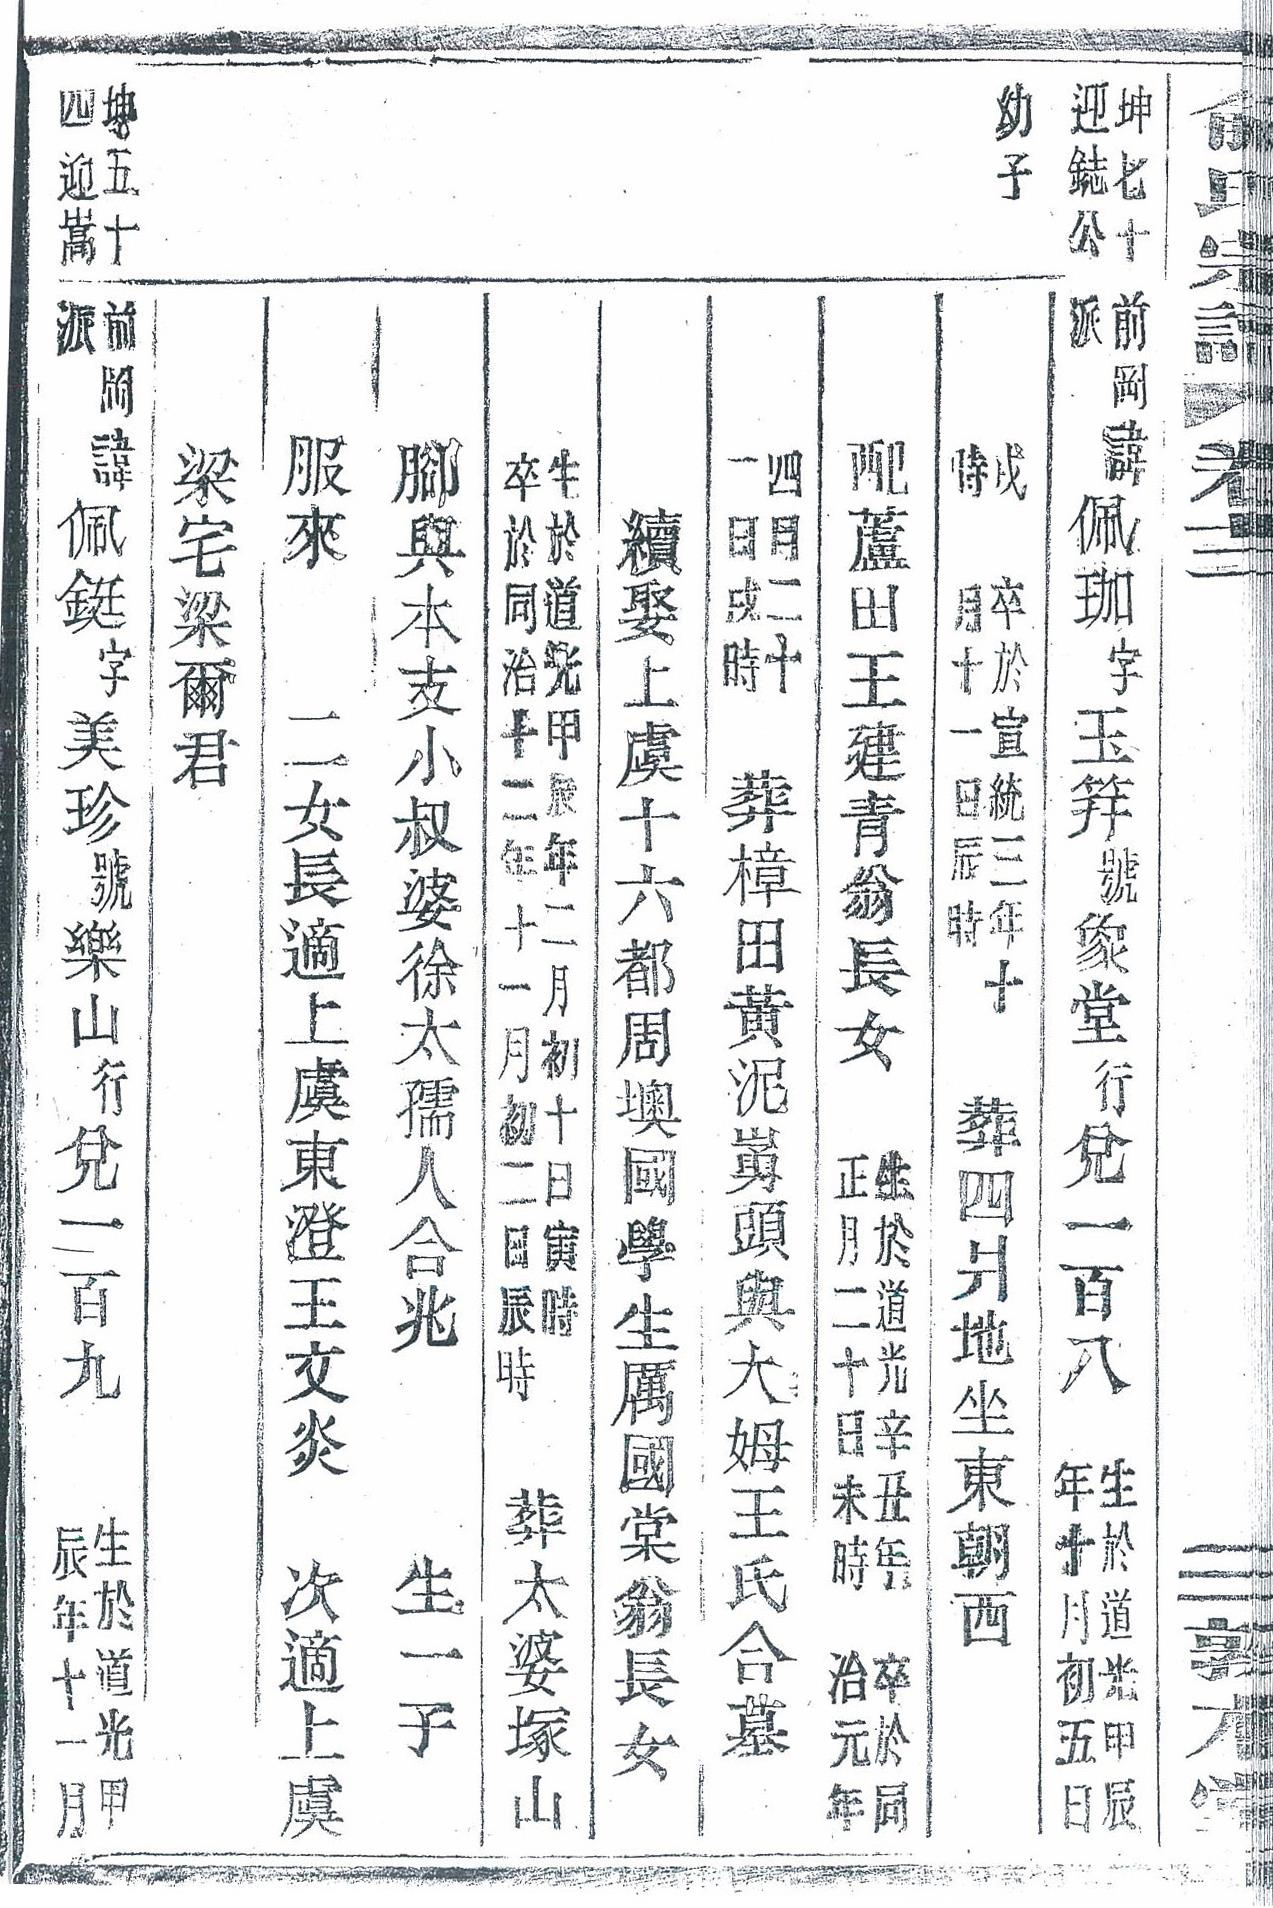 俞氏宗譜 卷二
坤七十
迎鋕公
幼子
前岡
派
諱佩珈字玉筓號象堂行兌一百八
生於道光甲辰
年十月初五日
戌
時
卒於宣統三年十
月十一日辰時
葬四爿地坐東朝西
配蘆田王建青翁長女
生於道光辛丑年
正月二十日未時
卒於同
治元年
四月二十
一日戌時
葬樟田黃泥嶲頭與大姆王氏合墓
續娶上虞十六都周墺國學生厲國棠翁長女
生於道光甲辰年二月初十日寅時
卒於同治十二年十一月初二日辰時
葬太婆塚山
腳與本支小叔婆徐太孺人合兆
生一子
服來
二女長適上虞東澄王文炎
次適上虞
梁宅梁爾君
坤五十
四迎嵩
前岡
派
諱佩鋌字美珍號樂山行兌一百九
生於道光甲
辰年十一月